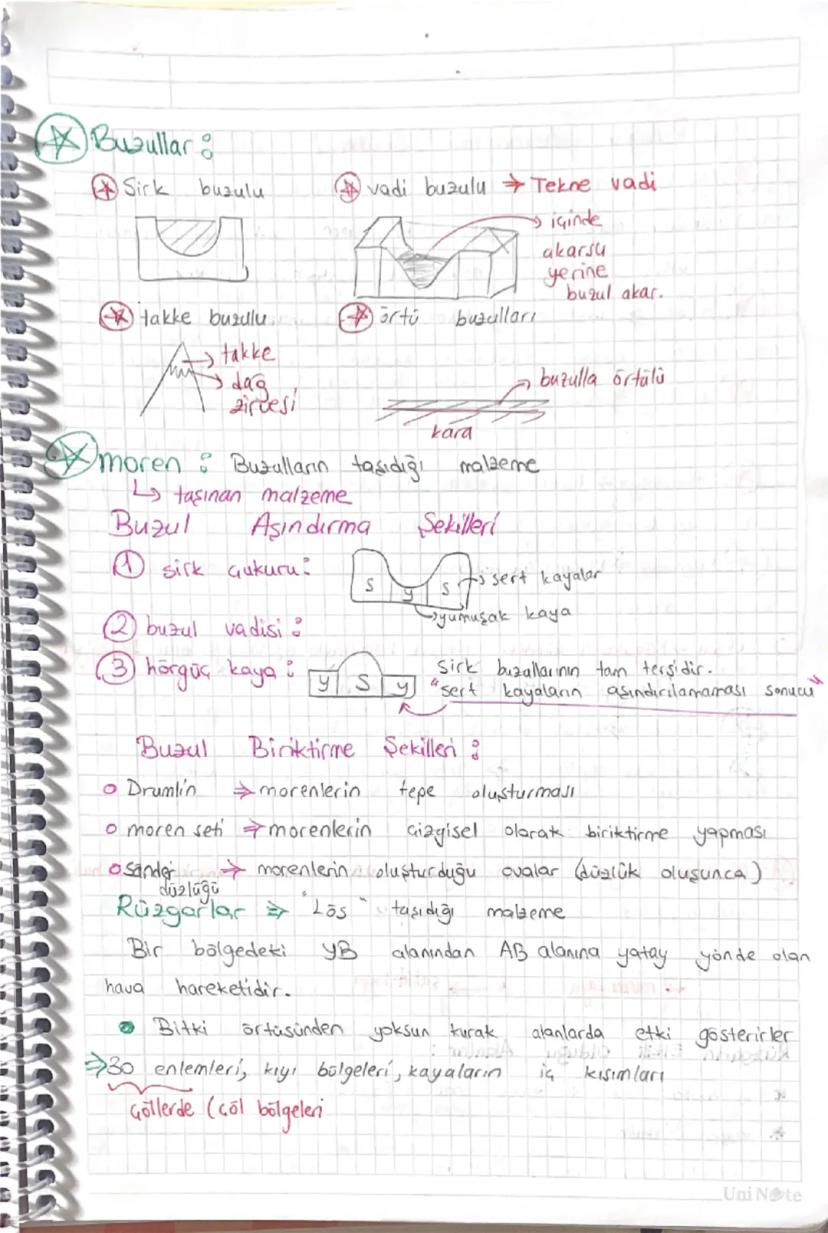 Buzullar :
Sirk buzulu
vadi buzulu → Tekne vadi
içinde
akarsu
yerine
buzul akar.
takke buzulu
örtü buzulları
takke
dağ
zirvesi
buzulla örtülü
kara
moren : Buzulların taşıdığı malzeme
↳ taşınan malzeme
Buzul Aşındırma Şekilleri
1 sirk çukuru :
S y S
sert kayalar
yumuşak kaya
2 buzul vadisi :
3 hörgüç kaya :
y S y
Sirk buzullarının tam tersidir.
"sert kayaların aşındırılamaması sonucu"
Buzul Biriktirme Şekilleri :
Drumlin ⇒ morenlerin tepe oluşturması
moren seti ⇒ morenlerin çizgisel olarak biriktirme yapması
sander düzlüğü ⇒ morenlerin oluşturduğu ovalar (düzlük oluşunca)
Rüzgarlar ⇒ "Lös" taşıdığı malzeme
Bir bölgedeki YB alanından AB alanına yatay yönde olan
hava hareketidir.
Bitki örtüsünden yoksun kurak alanlarda etki gösterirler
⇒ 30 enlemleri, kıyı bölgeleri, kayaların iç kısımları
Çöllerde (çöl bölgeleri
UniNote